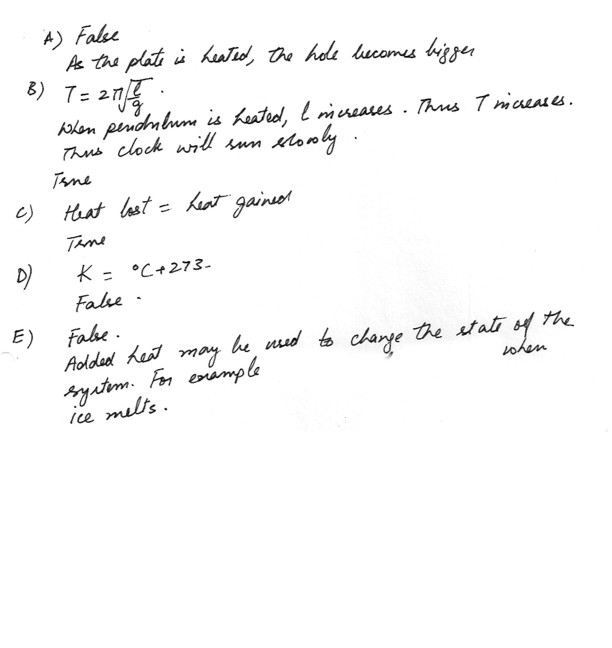 A) False
As the plate is heated, the hole becomes bigger
B) T = 2π√(l/g) .
When pendulum is heated, l increases . Thus T increases.
Thus clock will run slowly .
True
C) Heat lost = heat gained
True
D) K = °C+273-
False .
E) False .
Added heat may be used to change the state of the
system. For example when
ice melts .